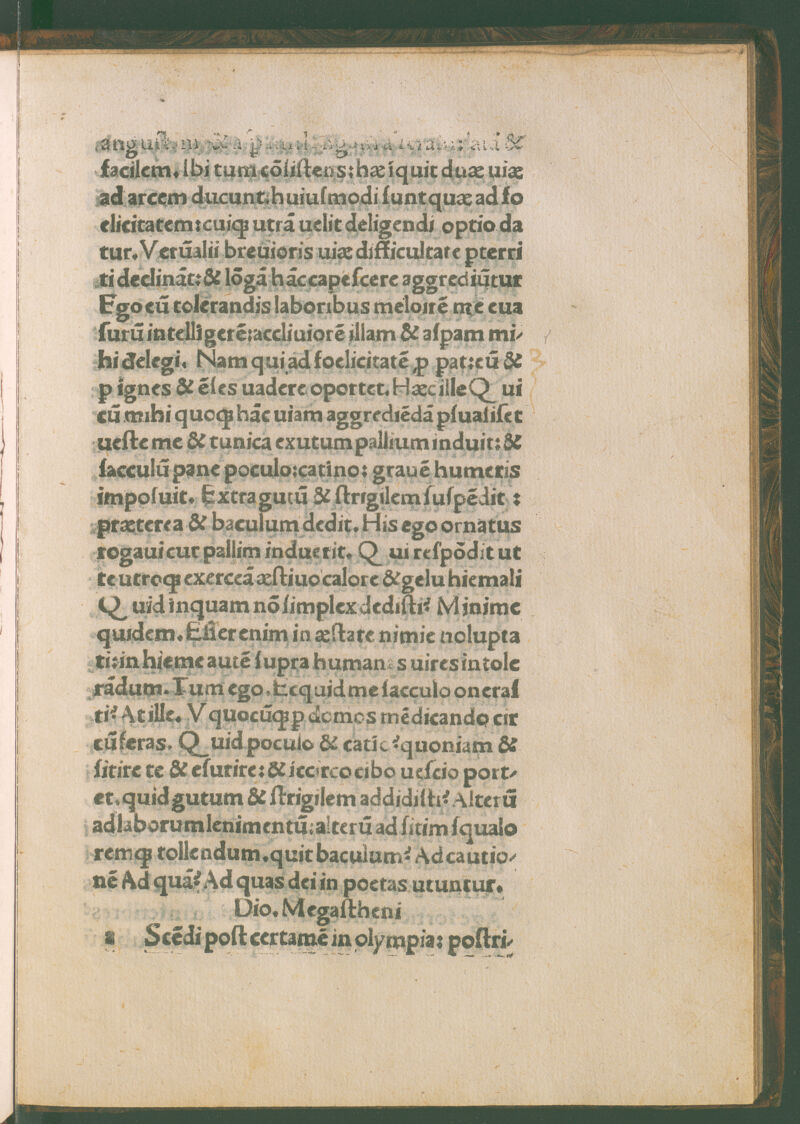 facilem. Ibi tum cōſiſtens: hæ īquit duæ uiæ
ad arcem ducunt: huiuſmodi ſunt quæ ad fo
elicitatem: cuiqꝫ utrā uelit deligendi optio da
tur. Verūalii breuioris uiæ difficultate pterri
ti declināt: & lōgā hāc capeſcere aggrediūtur
Ego cū tolerandis laboribus meloirē me eua
ſurū intelligerē: accliuiorē illam & aſpam mi⸗
hi delegi. Nam qui ad foelicitatē ꝓ pat: cū &
p ignes & ēſes uadere oportet. Hæc ille Q ui
cū mihi quoqꝫ hāc uiam aggrediēdā pſuaſiſet
ueſte me & tunica exutum pallium induit: &
ſacculū pane poculo: catino: grauē humeris
impoſuit. Extra gutū & ſtrigilem ſuſpēdit :
præterea & baculum dedit. His ego ornatus
rogaui cur pallim induerit. Q ui reſpōdit ut
te utroqꝫ exerceā æſtiuo calore & gelu hiemali
Q uid inquam nō ſimplex dediſti? Minime
quidem. Eſſer enim in æſtate nimie uolupta
ti: in hieme autē ſupra humanas uires intole
rādum. Tum ego. Ecquid me ſacculo oneraſ
ti? At ille. V quocūqꝫ p domos mēdicando cir
cū feras. Q uid poculo & catīo? quoniam &
ſitire te & eſurire: & iccirco cibo ueſcio port⸗
et. quid gutum & ſtrigilem addidiſti? Alterū
ad laborum lenimentū: alterū ad ſitim ſqualo
remqꝫ tollendum. quit baculum? Ad cautio⸗
nē Ad quā? Ad quas dei in poetas utuntur.
Dio. Megaſtheni
a Scēdi poſt certamē in olympia: poſtri⸗